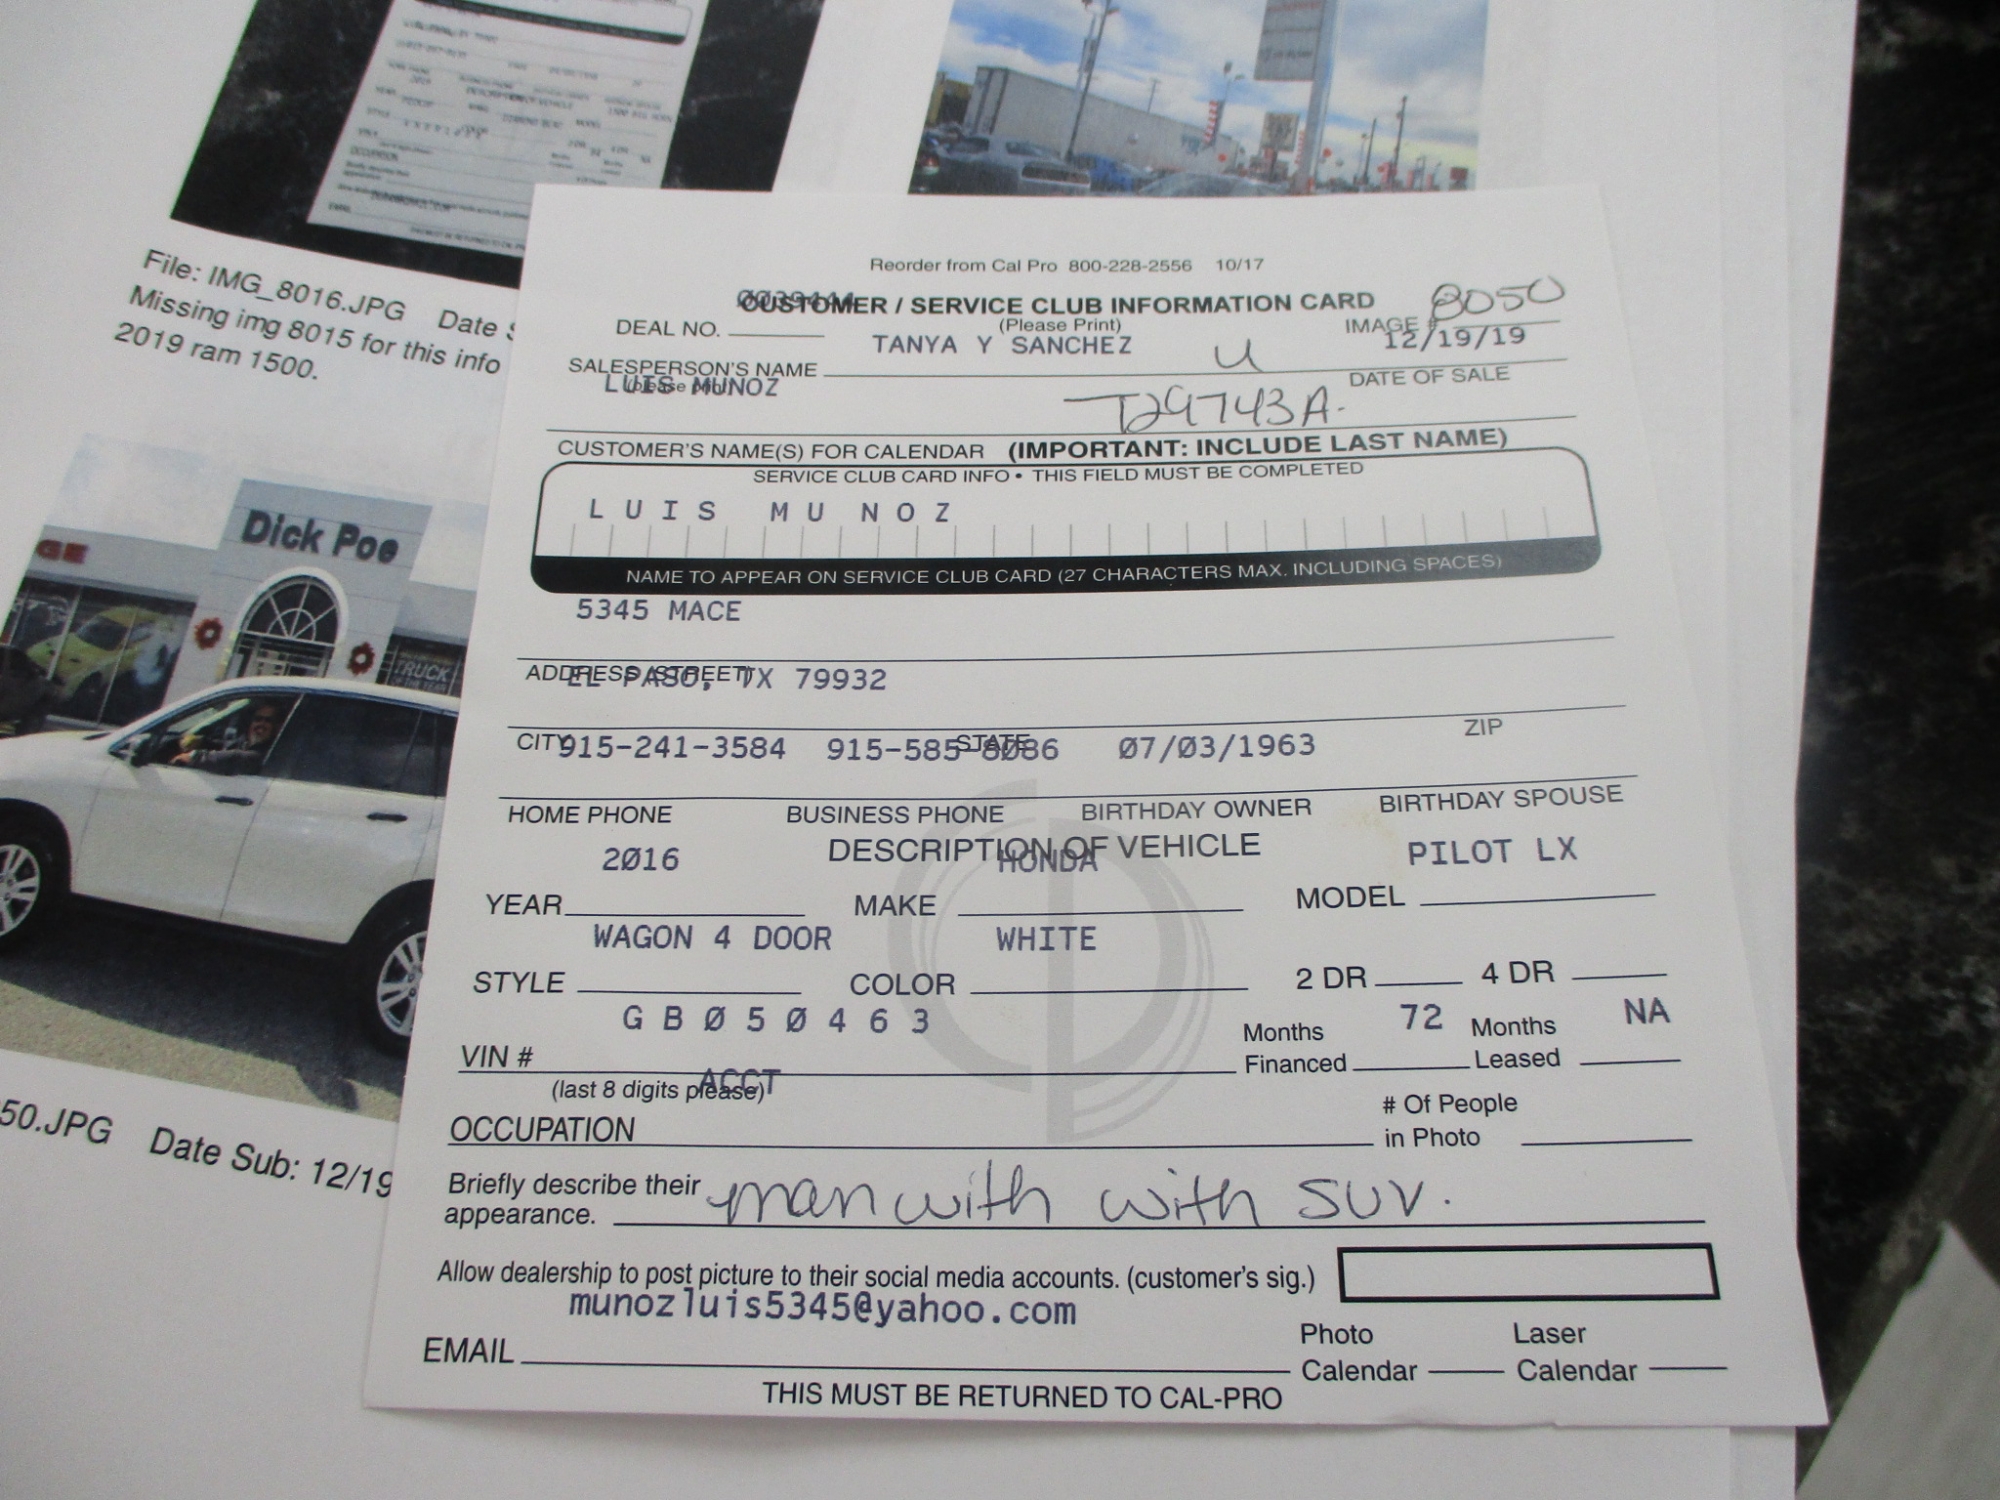 File: IMG_8016.JPG Date
Missing img 8015 for this info
2019 ram 1500.
Dick Poe
GE
TRUCK
50.JPG Date Sub: 12/19
Reorder from Cal Pro 800-228-2556 10/17
CUSTOMER / SERVICE CLUB INFORMATION CARD
8050
(Please Print)
DEAL NO.
IMAGE #
TANYA Y SANCHEZ
U
12/19/19
SALESPERSON'S NAME
DATE OF SALE
(please print)
LUIS MUNOZ
T29743A.
CUSTOMER'S NAME(S) FOR CALENDAR (IMPORTANT: INCLUDE LAST NAME)
SERVICE CLUB CARD INFO • THIS FIELD MUST BE COMPLETED
LUIS MUNOZ
NAME TO APPEAR ON SERVICE CLUB CARD (27 CHARACTERS MAX. INCLUDING SPACES)
5345 MACE
ADDRESS (STREET)
EL PASO, TX 79932
CITY STATE ZIP
915-241-3584 915-585-8086 07/03/1963
HOME PHONE BUSINESS PHONE BIRTHDAY OWNER BIRTHDAY SPOUSE
DESCRIPTION OF VEHICLE
2016 HONDA PILOT LX
YEAR MAKE MODEL
WAGON 4 DOOR WHITE
STYLE COLOR 2 DR 4 DR
GB050463 72 NA
VIN # Months Financed Months Leased
(last 8 digits please)
ACCT
OCCUPATION # Of People in Photo
Briefly describe their appearance. man with with suv.
Allow dealership to post picture to their social media accounts. (customer's sig.)
munozluis5345@yahoo.com
EMAIL Photo Calendar Laser Calendar
THIS MUST BE RETURNED TO CAL-PRO